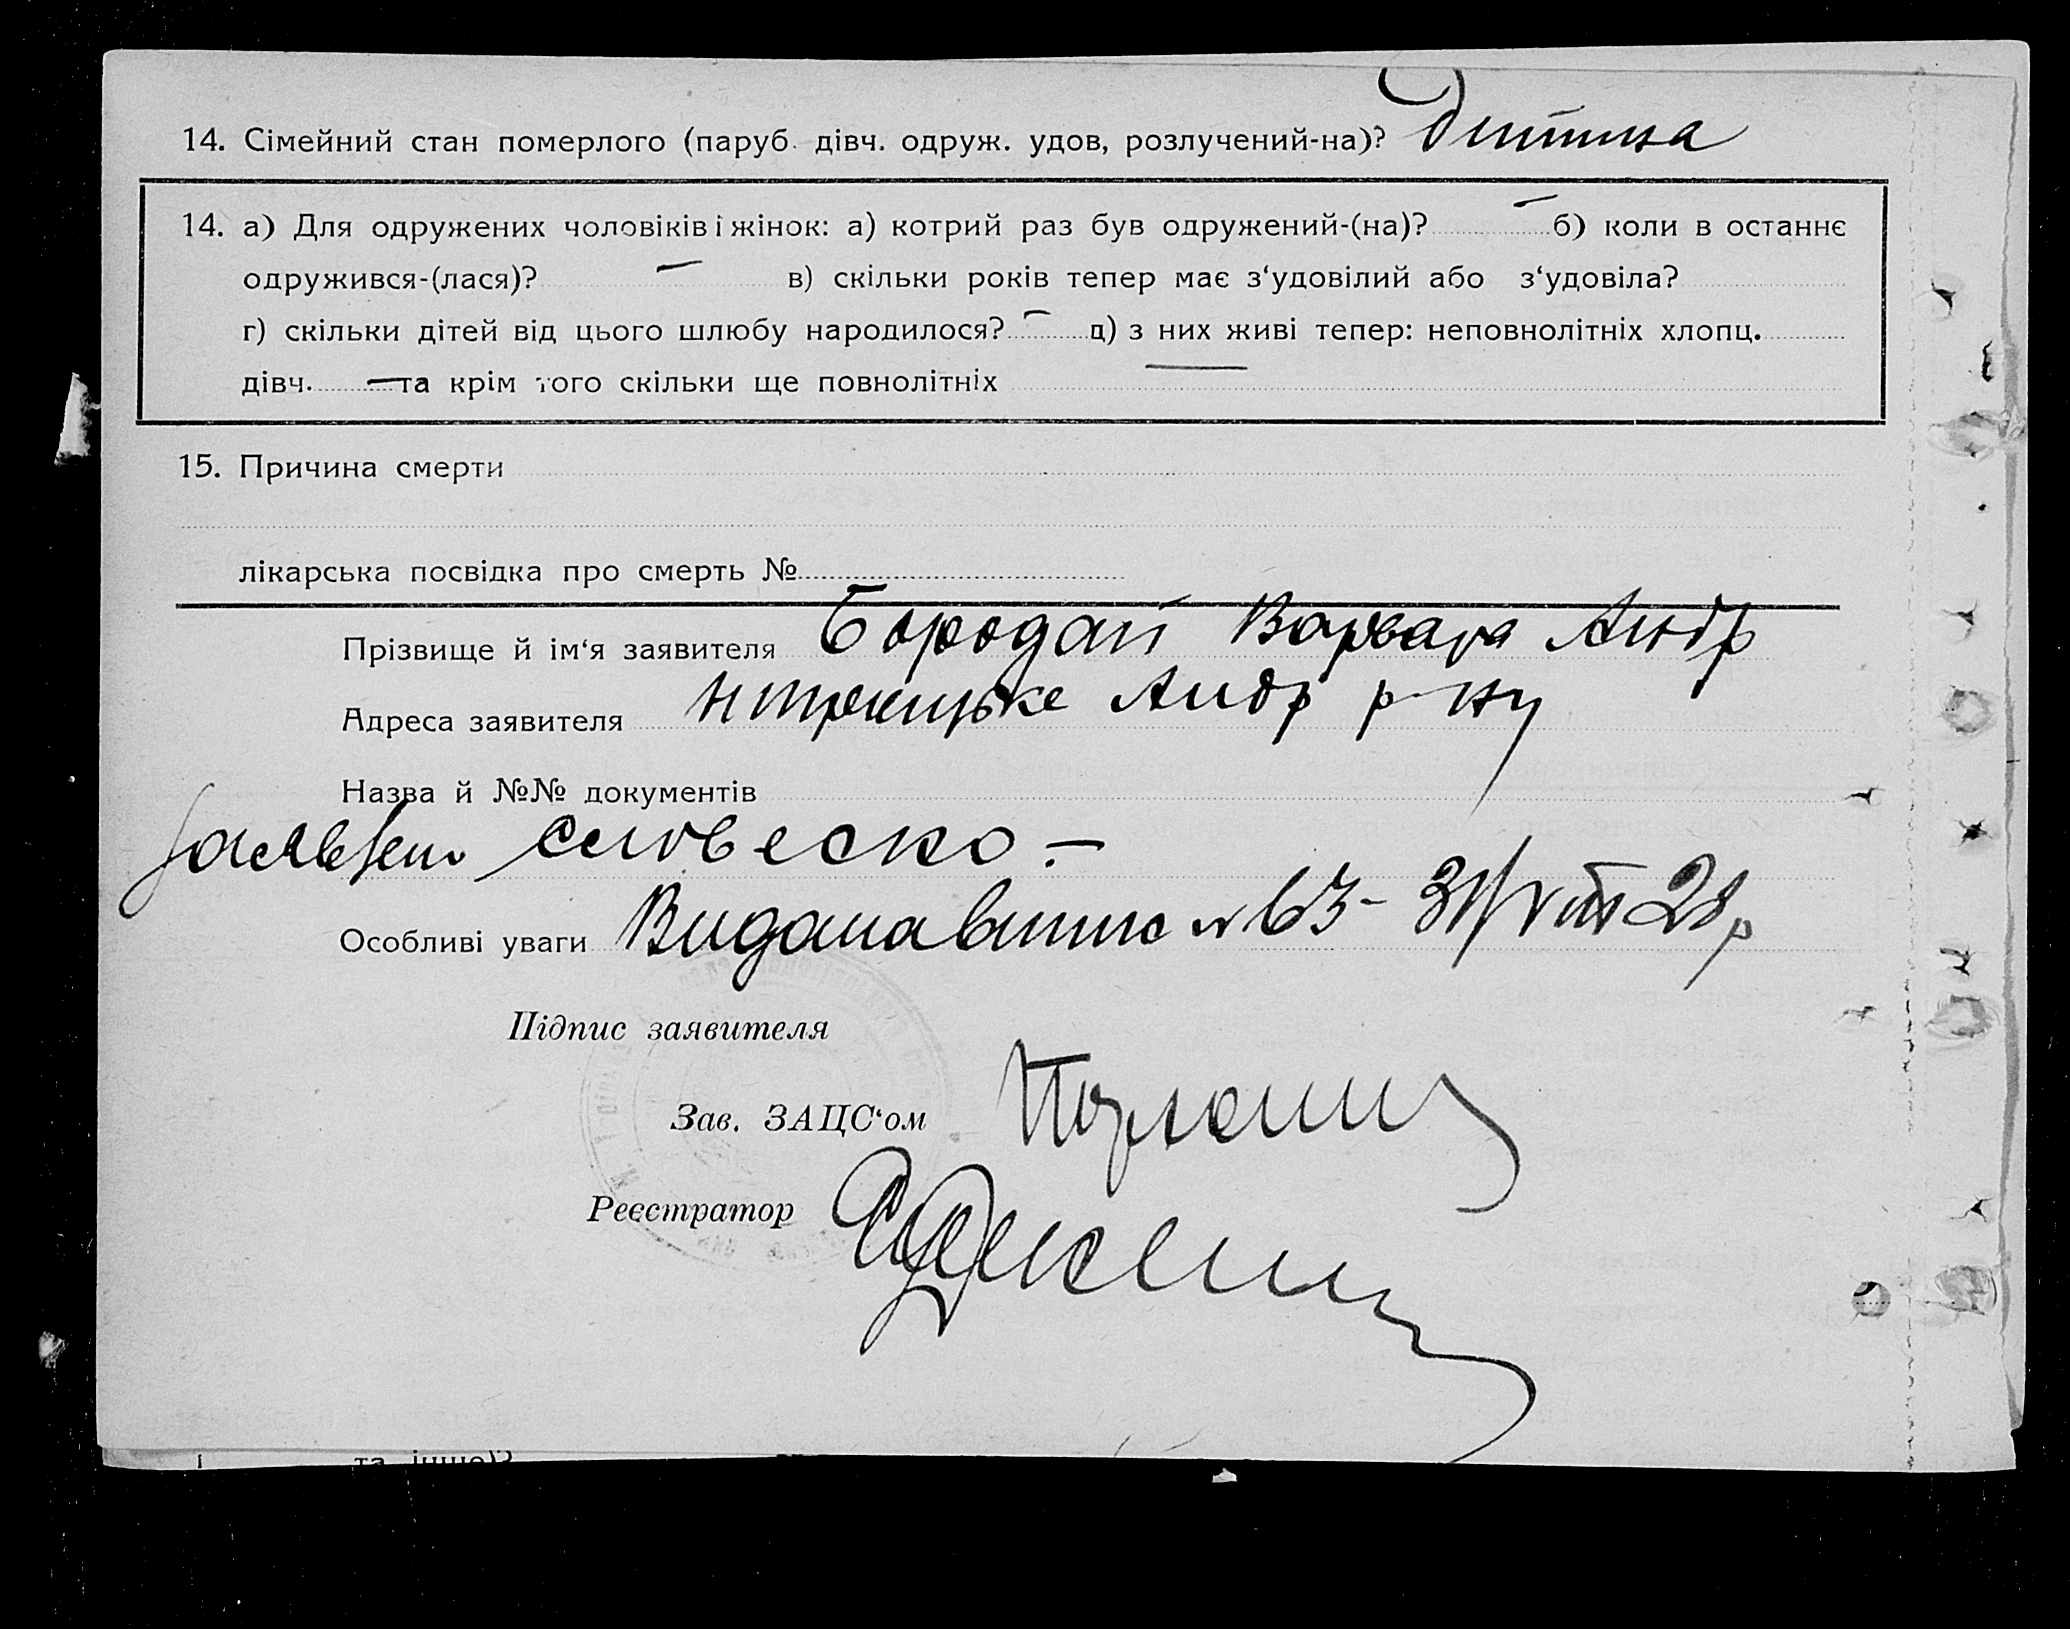 14. Сімейний стан померлого (паруб. дівч. одруж. удов, розлучений-на)? Дитина
14. а) Для одружених чоловіків і жінок: а) котрий раз був одружений-(на)? — б) коли в останнє
одружився-(лася)? — в) скільки років тепер має з‘удовілий або з‘удовіла?
г) скільки дітей від цього шлюбу народилося? — д) з них живі тепер: неповнолітніх хлопц.
дівч. — та крім того скільки ще повнолітніх —
15. Причина смерти
лікарська посвідка про смерть №
Прізвище й ім‘я заявителя Бородай Варвара Андр
Адреса заявителя Андр р-ну
Назва й №№ документів
словесно —
Особливі уваги Видана випис № 63 - 31/VIII 28 р
Підпис заявителя
Зав. ЗАЦС‘ом
Реєстратор
та інше)?